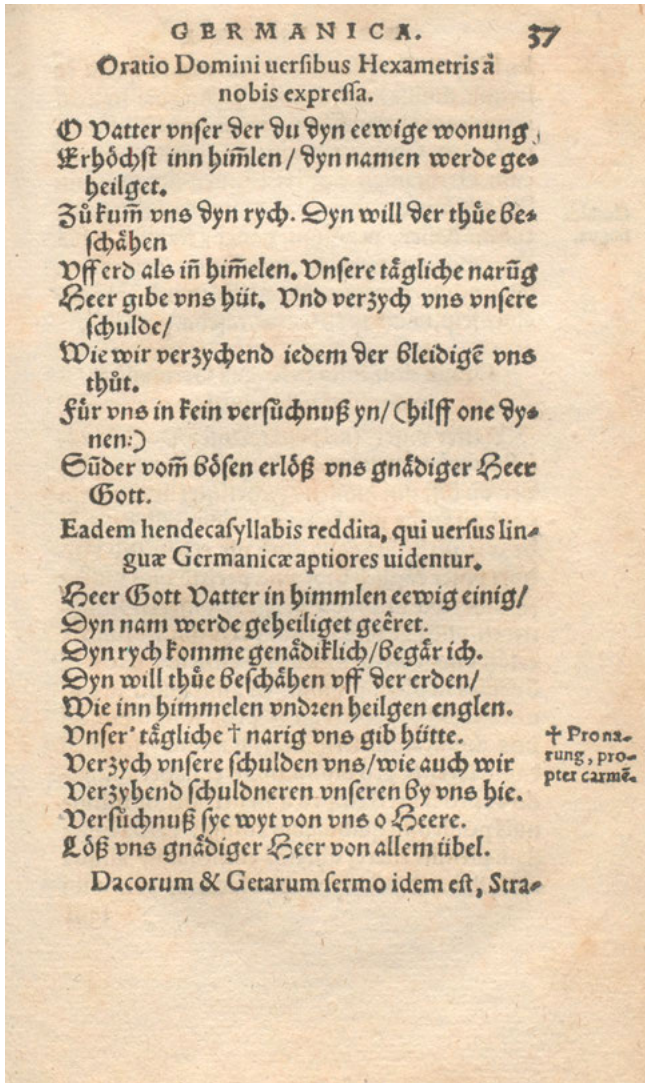 GERMANICA. 37
Oratio Domini uersibus Hexametris à
nobis expressa.
O Vatter vnser der du dyn eewige wonung,
Erhöchst inn him̃len / dyn namen werde ge⸗
heilget.
Zů kum̃ vns dyn rych. Dyn will der thůe be⸗
schähen
Vff erd als iñ him̃elen. Vnsere tägliche narũg
Heer gibe vns hüt. Vnd verzych vns vnsere
schulde/
Wie wir verzychend iedem der bleidigẽ vns
thůt.
Für vns in kein versůchnuß yn/ (hilff one dy⸗
nen:)
Sũder vom̃ bösen erlöß vns gnädiger Heer
Gott.
Eadem hendecasyllabis reddita, qui uersus lin-
guæ Germanicæ aptiores uidentur.
Heer Gott Vatter in himmlen eewig einig/
Dyn nam werde geheiliget geêret.
Dyn rych komme genädiklich/ begär ich.
Dyn will thůe beschähen vff der erden/
Wie inn himmelen vndren heilgen englen.
Vnser' tägliche † narig vns gib hütte.
† Pro na-
rung, pro-
pter carmẽ.
Verzych vnsere schulden vns/ wie auch wir
Verzyhend schuldneren vnseren by vns hie.
Versůchnuß sye wyt von vns o Heere.
Löß vns gnädiger Heer von allem übel.
Dacorum & Getarum sermo idem est, Stra-